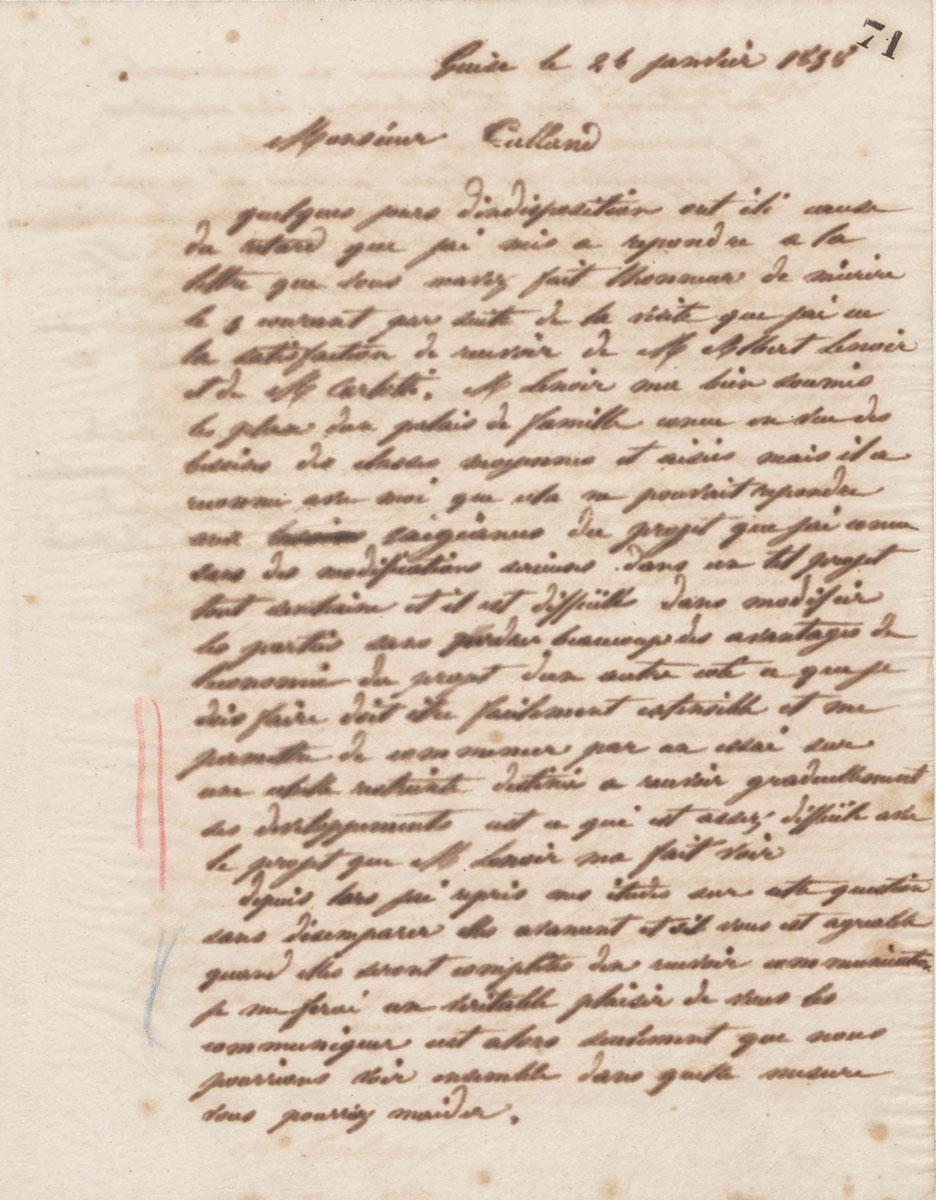 71
Guise le 26 janvier 1858
Monsieur Calland
quelques jours dindisposition ont été cause
du retard que jai mis a repondre a la
lettre que vous mavez fait lhonneur de mécrire
le 8 courant par suite de la visite que jai eu
la satisfaction de recevoir de M Albert Lenoir
et de M Carletti. M Lenoir ma bien soumis
les plan dun palais de famille concu en vue des
besoins des classes moyennes et aisées mais il a
reconnu avec moi que cela ne pouvait repondre
aux exigeances du projet que jai concu
sans des modifications serieuses. dans un tel projet
tout senchaine et il est difficile dans modifier
les parties sans perdre beaucoup des avantages de
leconomie du projet dun autre coté ce que je
dois faire doit être facilement extensible et me
permettre de commencer par un essai sur
une echelle restreinte destinée a recevoir graduellement
ses developpements cest ce qui est assez difficile avec
le projet que M Lenoir ma fait voir
depuis lors jai repris mes études sur cette question
sans desemparer elles avancent et sil vous est agreable
quand elles seront complètes den recevoir communication
je me ferai un veritable plaisir de vous les
communiquer cest alors seulement que nous
pourrions voir ensemble dans quelle mesure
vous pourriez maider.